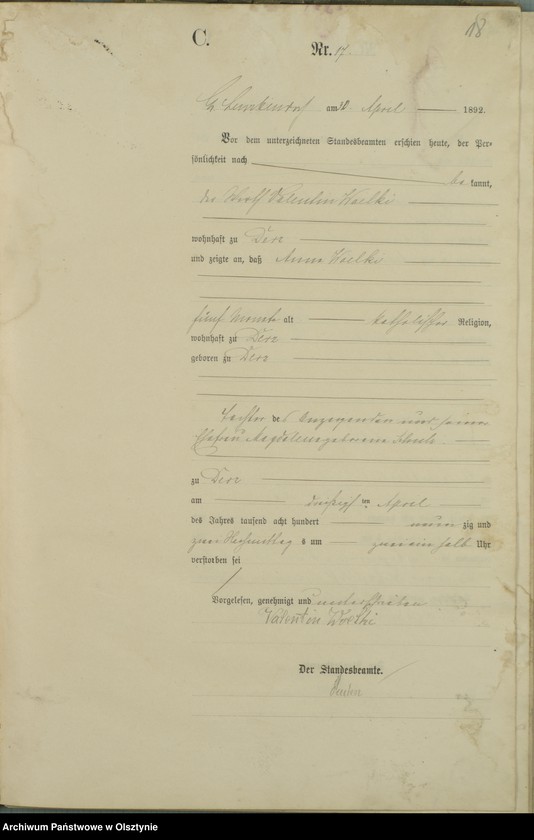 18
C.
Nr. 17
am 30 April 1892.
Vor dem unterzeichneten Standesbeamten erschien heute, der Per-
sönlichkeit nach
be kannt,
Valentin Woelki
wohnhaft zu Derz
und zeigte an, daß Anna Woelki
fünf Monate alt katholischer Religion,
wohnhaft zu Derz
geboren zu Derz
Tochter des Anzeigenden und seiner
Ehefrau Magdalena geborene
zu Derz
am dreißigsten April
des Jahres tausend acht hundert neun zig und
zwei Nachmittags um zwei ein halb Uhr
verstorben sei
Vorgelesen, genehmigt und unterschrieben
Valentin Woelki
Der Standesbeamte.
Archiwum Państwowe w Olsztynie